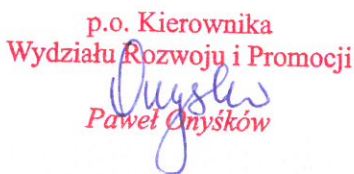 p.o. Kierownika
Wydziału Rozwoju i Promocji
Paweł Onyśków